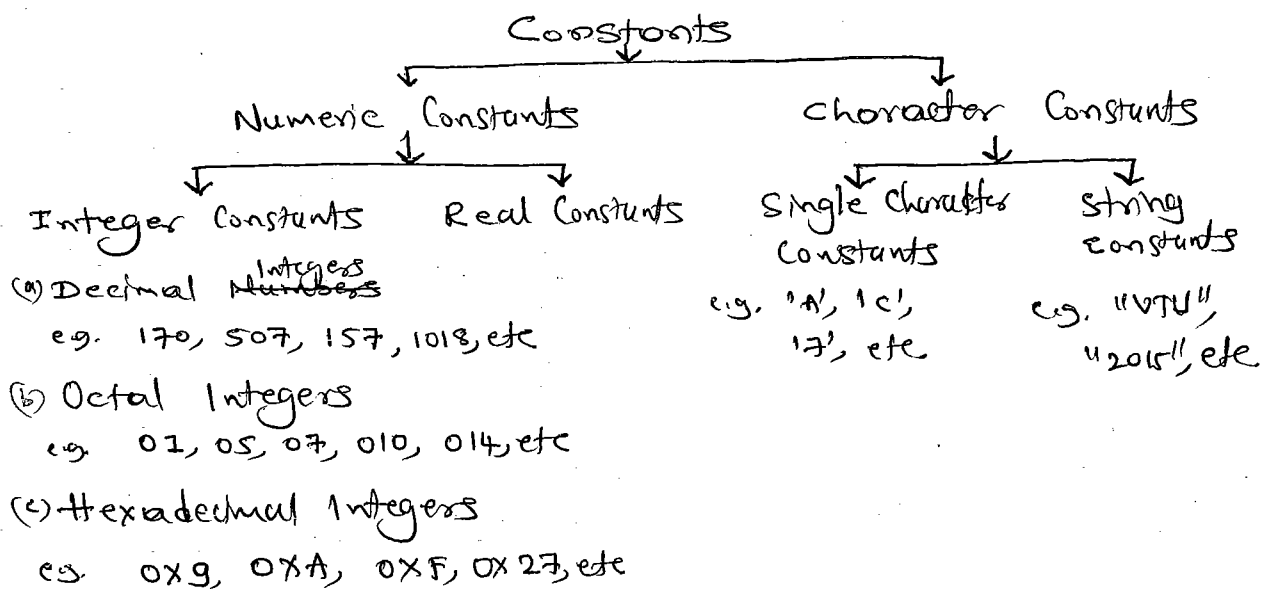 Constants
Numeric Constants
Character Constants
Integer Constants
Real Constants
Single Character
Constants
String
constants
(a) Decimal Numbers Integers
e.g. 170, 507, 157, 1018, etc
(b) Octal Integers
e.g. 01, 05, 07, 010, 014, etc
(c) Hexadecimal Integers
eg. 0X9, 0XA, 0XF, 0X27, etc
e.g. 'A', 'C',
'7', etc
e.g. "VTU",
"2015", etc